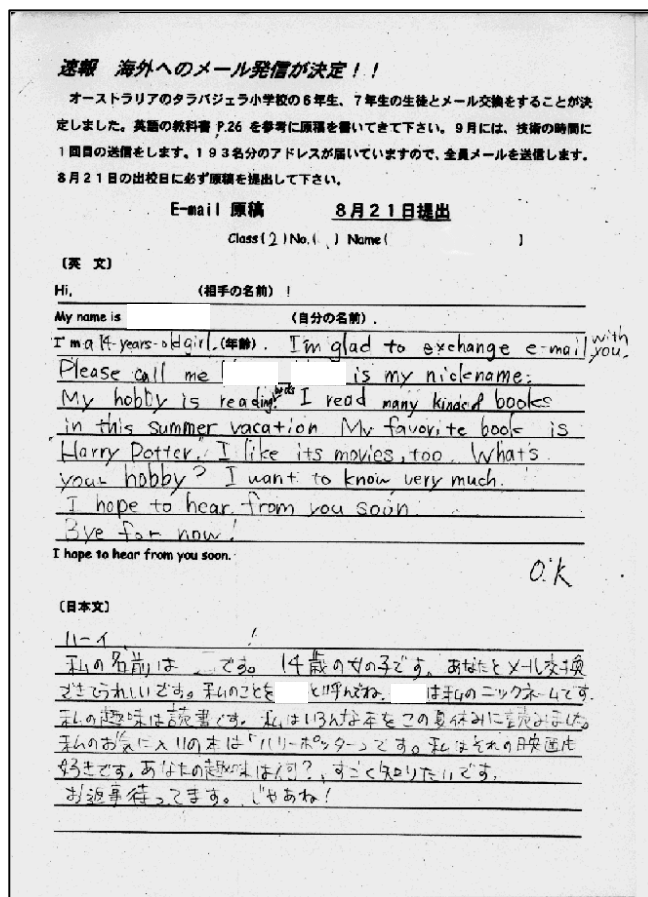 速報 海外へのメール発信が決定!!
オーストラリアのタラバジェラ小学校の6年生、7年生の生徒とメール交換をすることが決
定しました。英語の教科書 P.26 を参考に原稿を書いてきて下さい。9月には、技術の時間に
1回目の送信をします。193名分のアドレスが届いていますので、全員メールを送信します。
8月21日の出校日に必ず原稿を提出して下さい。
E-mail 原稿 8月21日提出
Class(2)No.( ) Name( )
〔英 文〕
Hi, (相手の名前) !
My name is (自分の名前).
I'm a 14-years-old girl.(年齢). I'm glad to exchange e-mail with you.
Please call me is my nickname.
My hobby is reading I read many kind of books
in this summer vacation My favorite book is
Harry Potter. I like its movies, too. What's
your hobby? I want to know very much.
I hope to hear from you soon
Bye for now!
I hope to hear from you soon.
O.K
〔日本文〕
ハーイ !
私の名前は です。 14歳の女の子です。あなたとメール交換
できてうれしいです。私のことを と呼んでね。 は私のニックネームです.
私の趣味は読書です。私はいろんな本をこの夏休みに読みました。
私のお気に入りの本は「ハリーポッター」です。私はそれの映画も
好きです。あなたの趣味は何?、すごく知りたいです.
お返事待ってます。じゃあね!